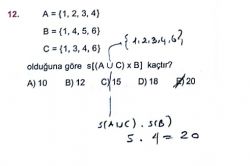 12. A = {1, 2, 3, 4}
B = {1, 4, 5, 6}
C = {1, 3, 4, 6}
{1,2,3,4,6}
olduğuna göre s[(A ∪ C) x B] kaçtır?
A) 10 B) 12 C) 15 D) 18 E) 20
s(A∪C) . s(B)
5 . 4 = 20